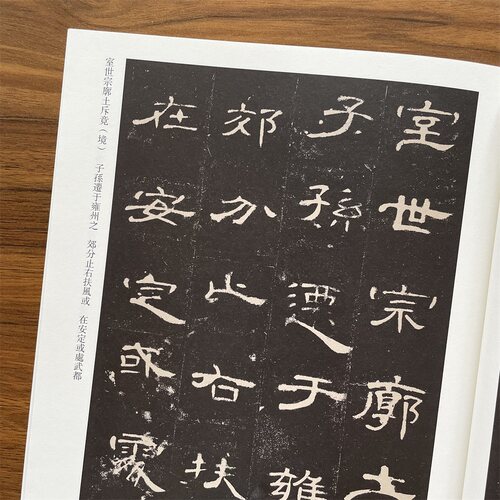 室世宗廓土斥竟（境） 子孫遷于雍州之 郊分止右扶風或 在安定或處武都
室世宗廓土
子孫遷于雍
郊分止右扶
在安定或處